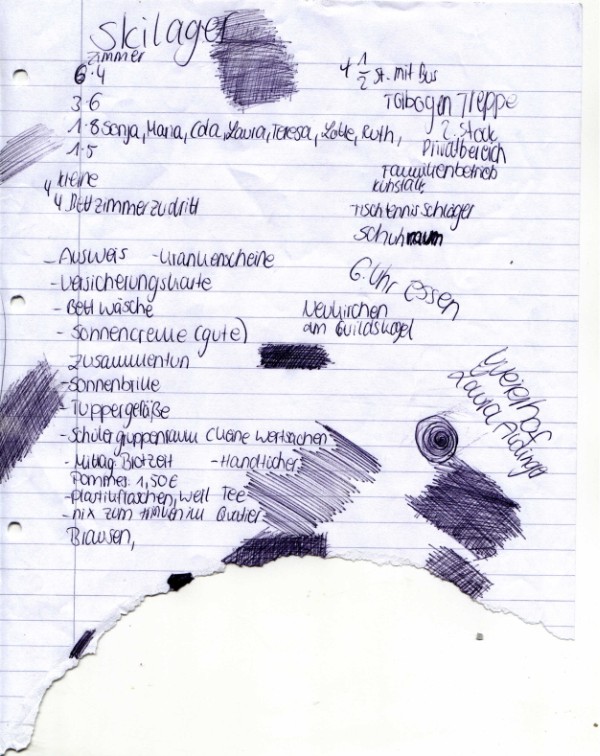 Skilager
Zimmer
6·4
3·6
1·8 Sonja, Maria, Cola, Laura, Teresa, Lotte, Ruth,
1·5
4 kleine
4 Bettzimmer zu dritt
4 1/2 St. mit Bus
Treppe
2. Stock
Privatbereich
Familienbetrieb
Kuhstall
Tischtennisschläger
Schuhraum
- Ausweis - Krankenscheine
- Versicherungskarte
- Bettwäsche
- Sonnencreme (gute)
zusammentun
- Sonnenbrille
- Tuppergefäße
- Schülergruppenraum keine Wertsachen
- Mittag Brotzeit - Handtücher
Pommes 1,50€
- Plastikflaschen, weil Tee
- nix zum trinken im Quatier
Brausen,
6. Uhr Essen
Neukirchen
am
Weierhof
Laura